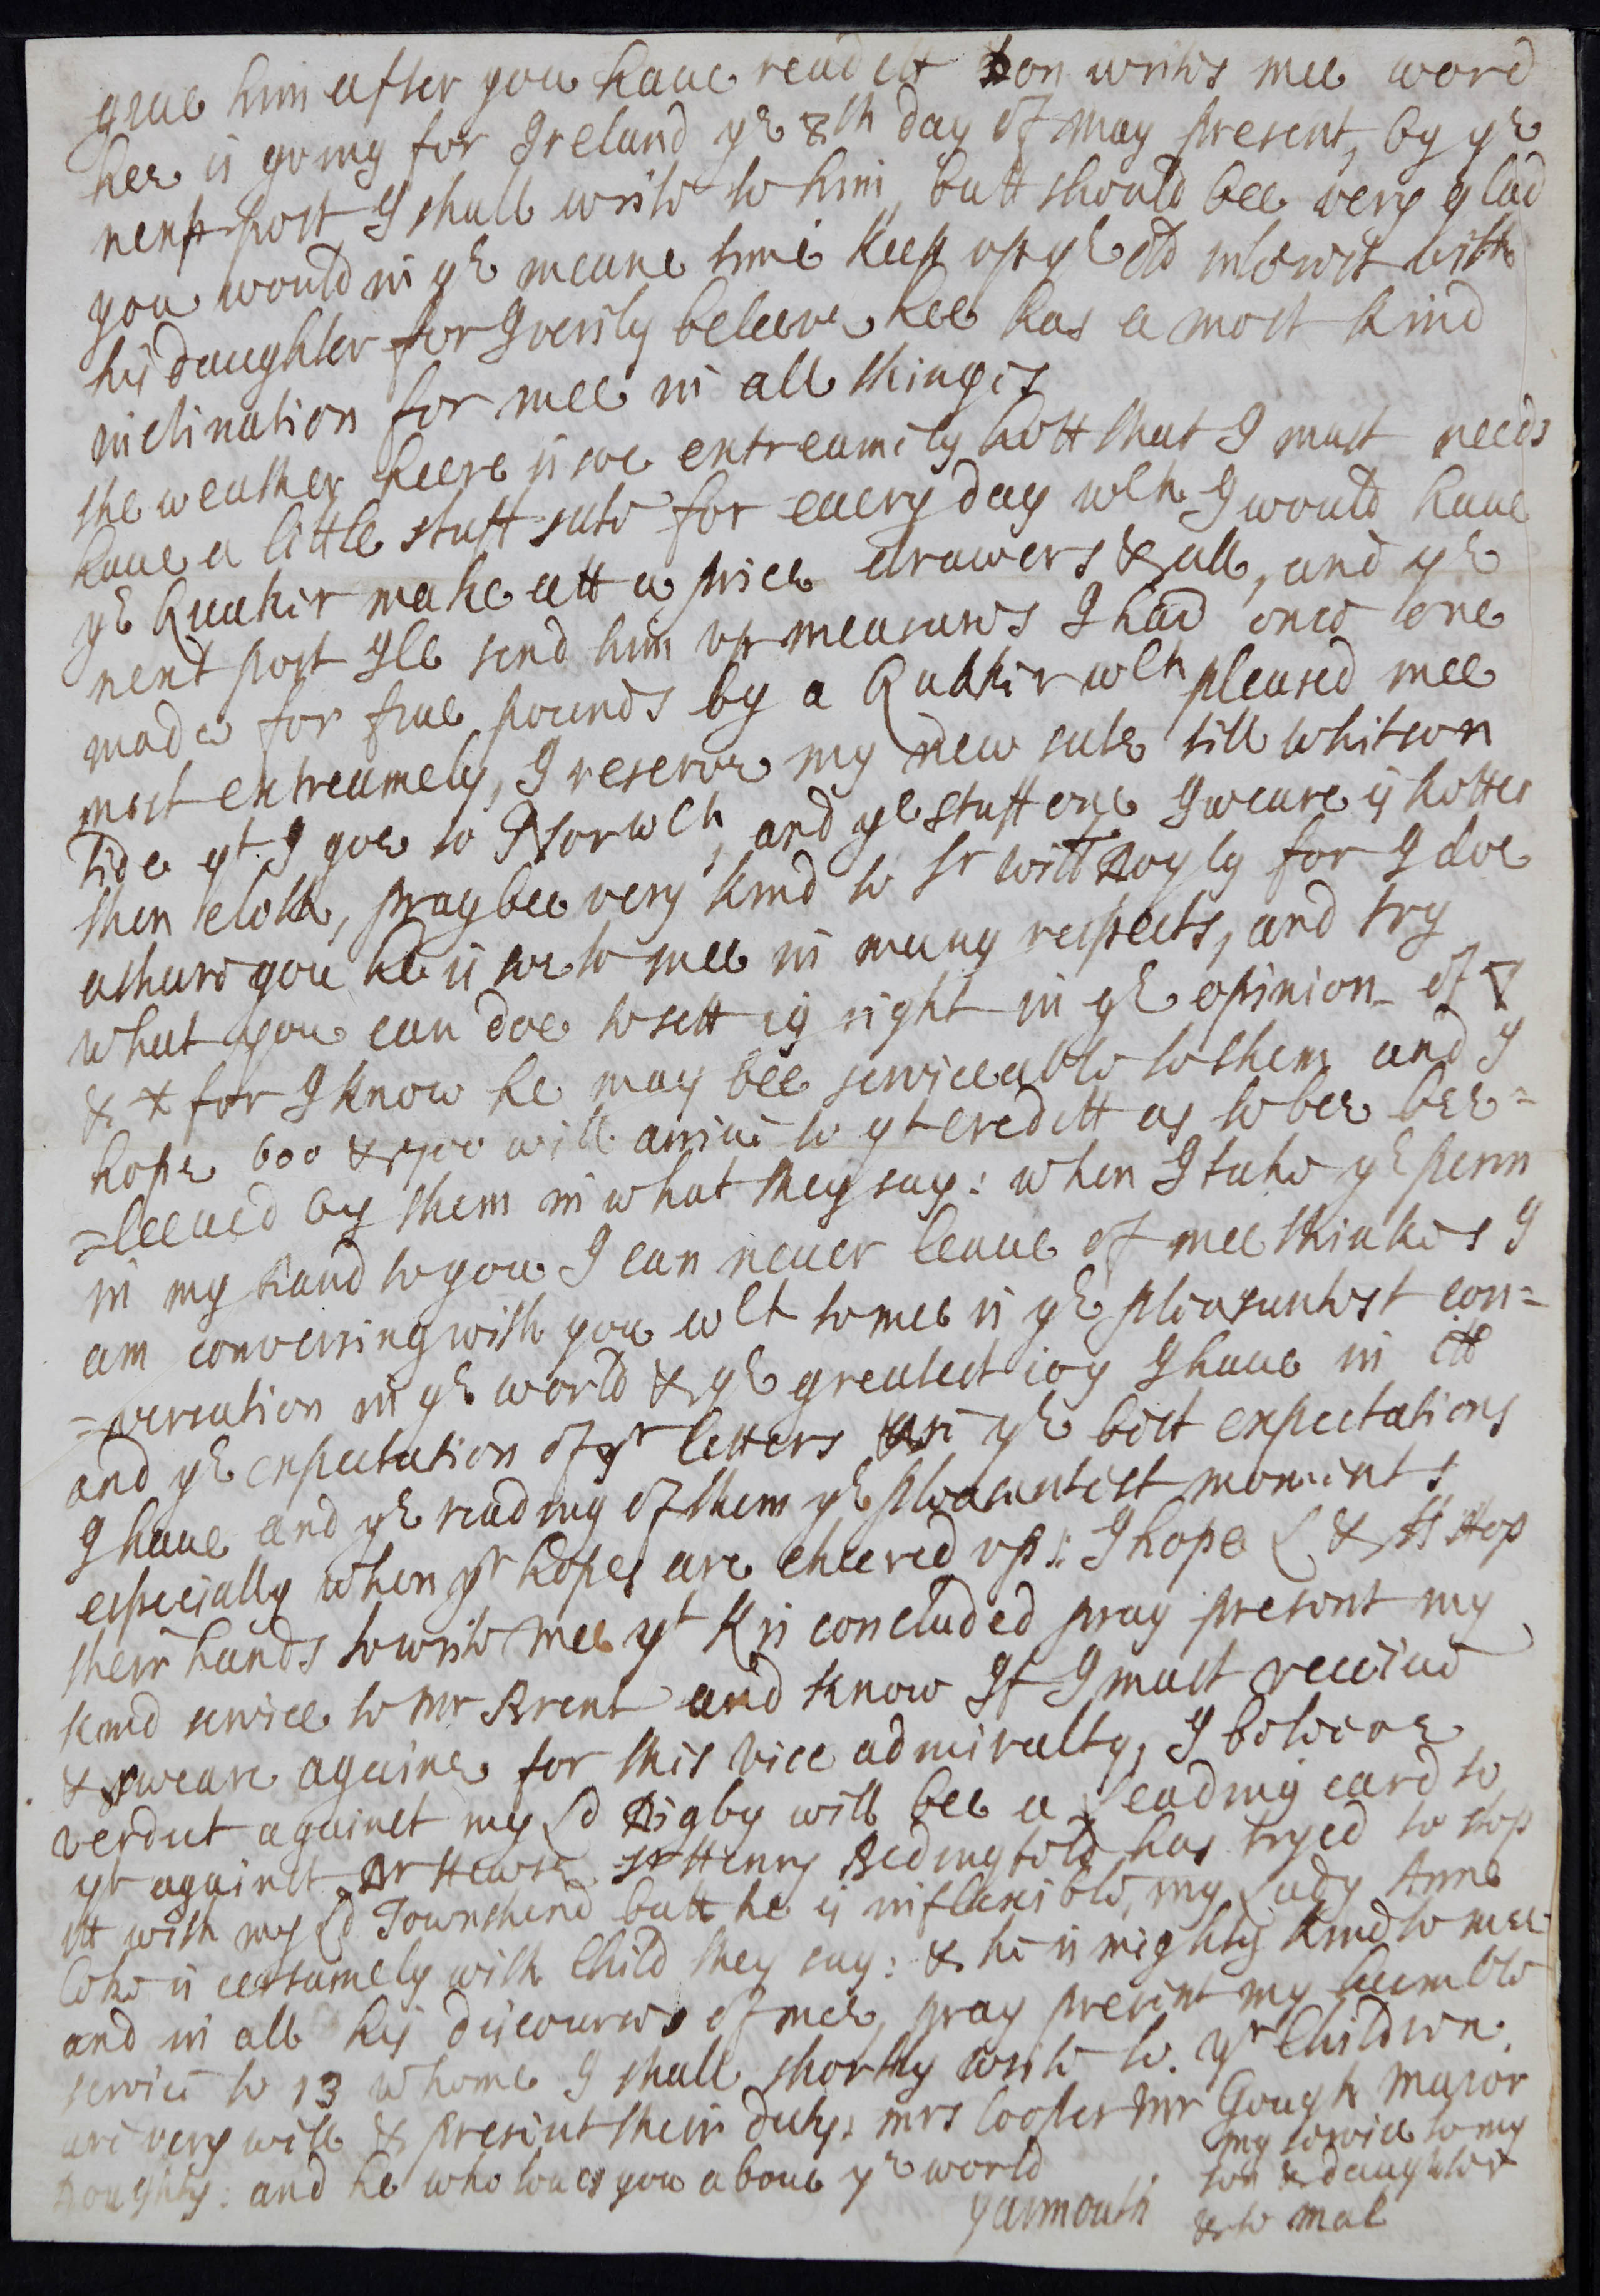 giue him after you haue read itt Don writes mee word
hee is going for Ireland ye 8th day of May present, by ye
next post I shall write to him, butt should bee very glad
you would in ye meane time keep vp ye old interest with
his daughter for I verily beleeve hee has a most kind
inclination for mee in all thinges
the weather heere is soe extreamely hott that I must needs
haue a little stuff sute for euery day wch I would haue
ye Quaker make att a price drawers & all, and ye
next post Ile send him vp measures I had once one
made for fiue pounds by a Quaker wch pleased mee
most extreamely, I reserve my new sute till whitson
tide yt I goe to Norwch, and ye stuff one I weare is hotter
then cloth, pray bee very kind to Sr Will Doyly for I doe
ashure you he is soe to mee in many respects, and try
what you can doe to sett 19 right in ye opinion of ∇
& + for I know he may bee serviceable to them and I
hope 600 & 700 will arriue to yt creditt as to bee bee=
=leeued by them in what they say: when I take ye penn
in my hand to you I can neuer leaue of mee thinkes I
am conversing with you wch to mee is ye pleasantest con=
=versation in ye world & ye greatest ioy I haue in itt
and ye expectation of yr letters are ye best expectations
I haue and ye reading of them ye pleasantest moments
especially when yr hopes are cheered vp: I hope L & Stop
their hands to write mee yt K is concluded pray present my
kind service to Mr Brent and know If I must receiue
& sweare againe for this vice admiralty, I beleeve
verdict against my Ld Digby will bee a Leading card to
yt against Mr Hewse Sr Henry Bedingfeld has tryed to stop
itt with my Ld Townshend butt he is inflexible, my Lady Anne
Coke is certainely with Child they say: & he is mighty kind to mee
and in all his discourses of mee, pray present my humble
service to 13 whome I shall shortly write to. yr Children
are very well & present their duty: mrs Cooper Mr Gough Maior
Doughty: and he who loues you aboue ye world
Yarmouth
my service to my
son & daughter
& to Mal